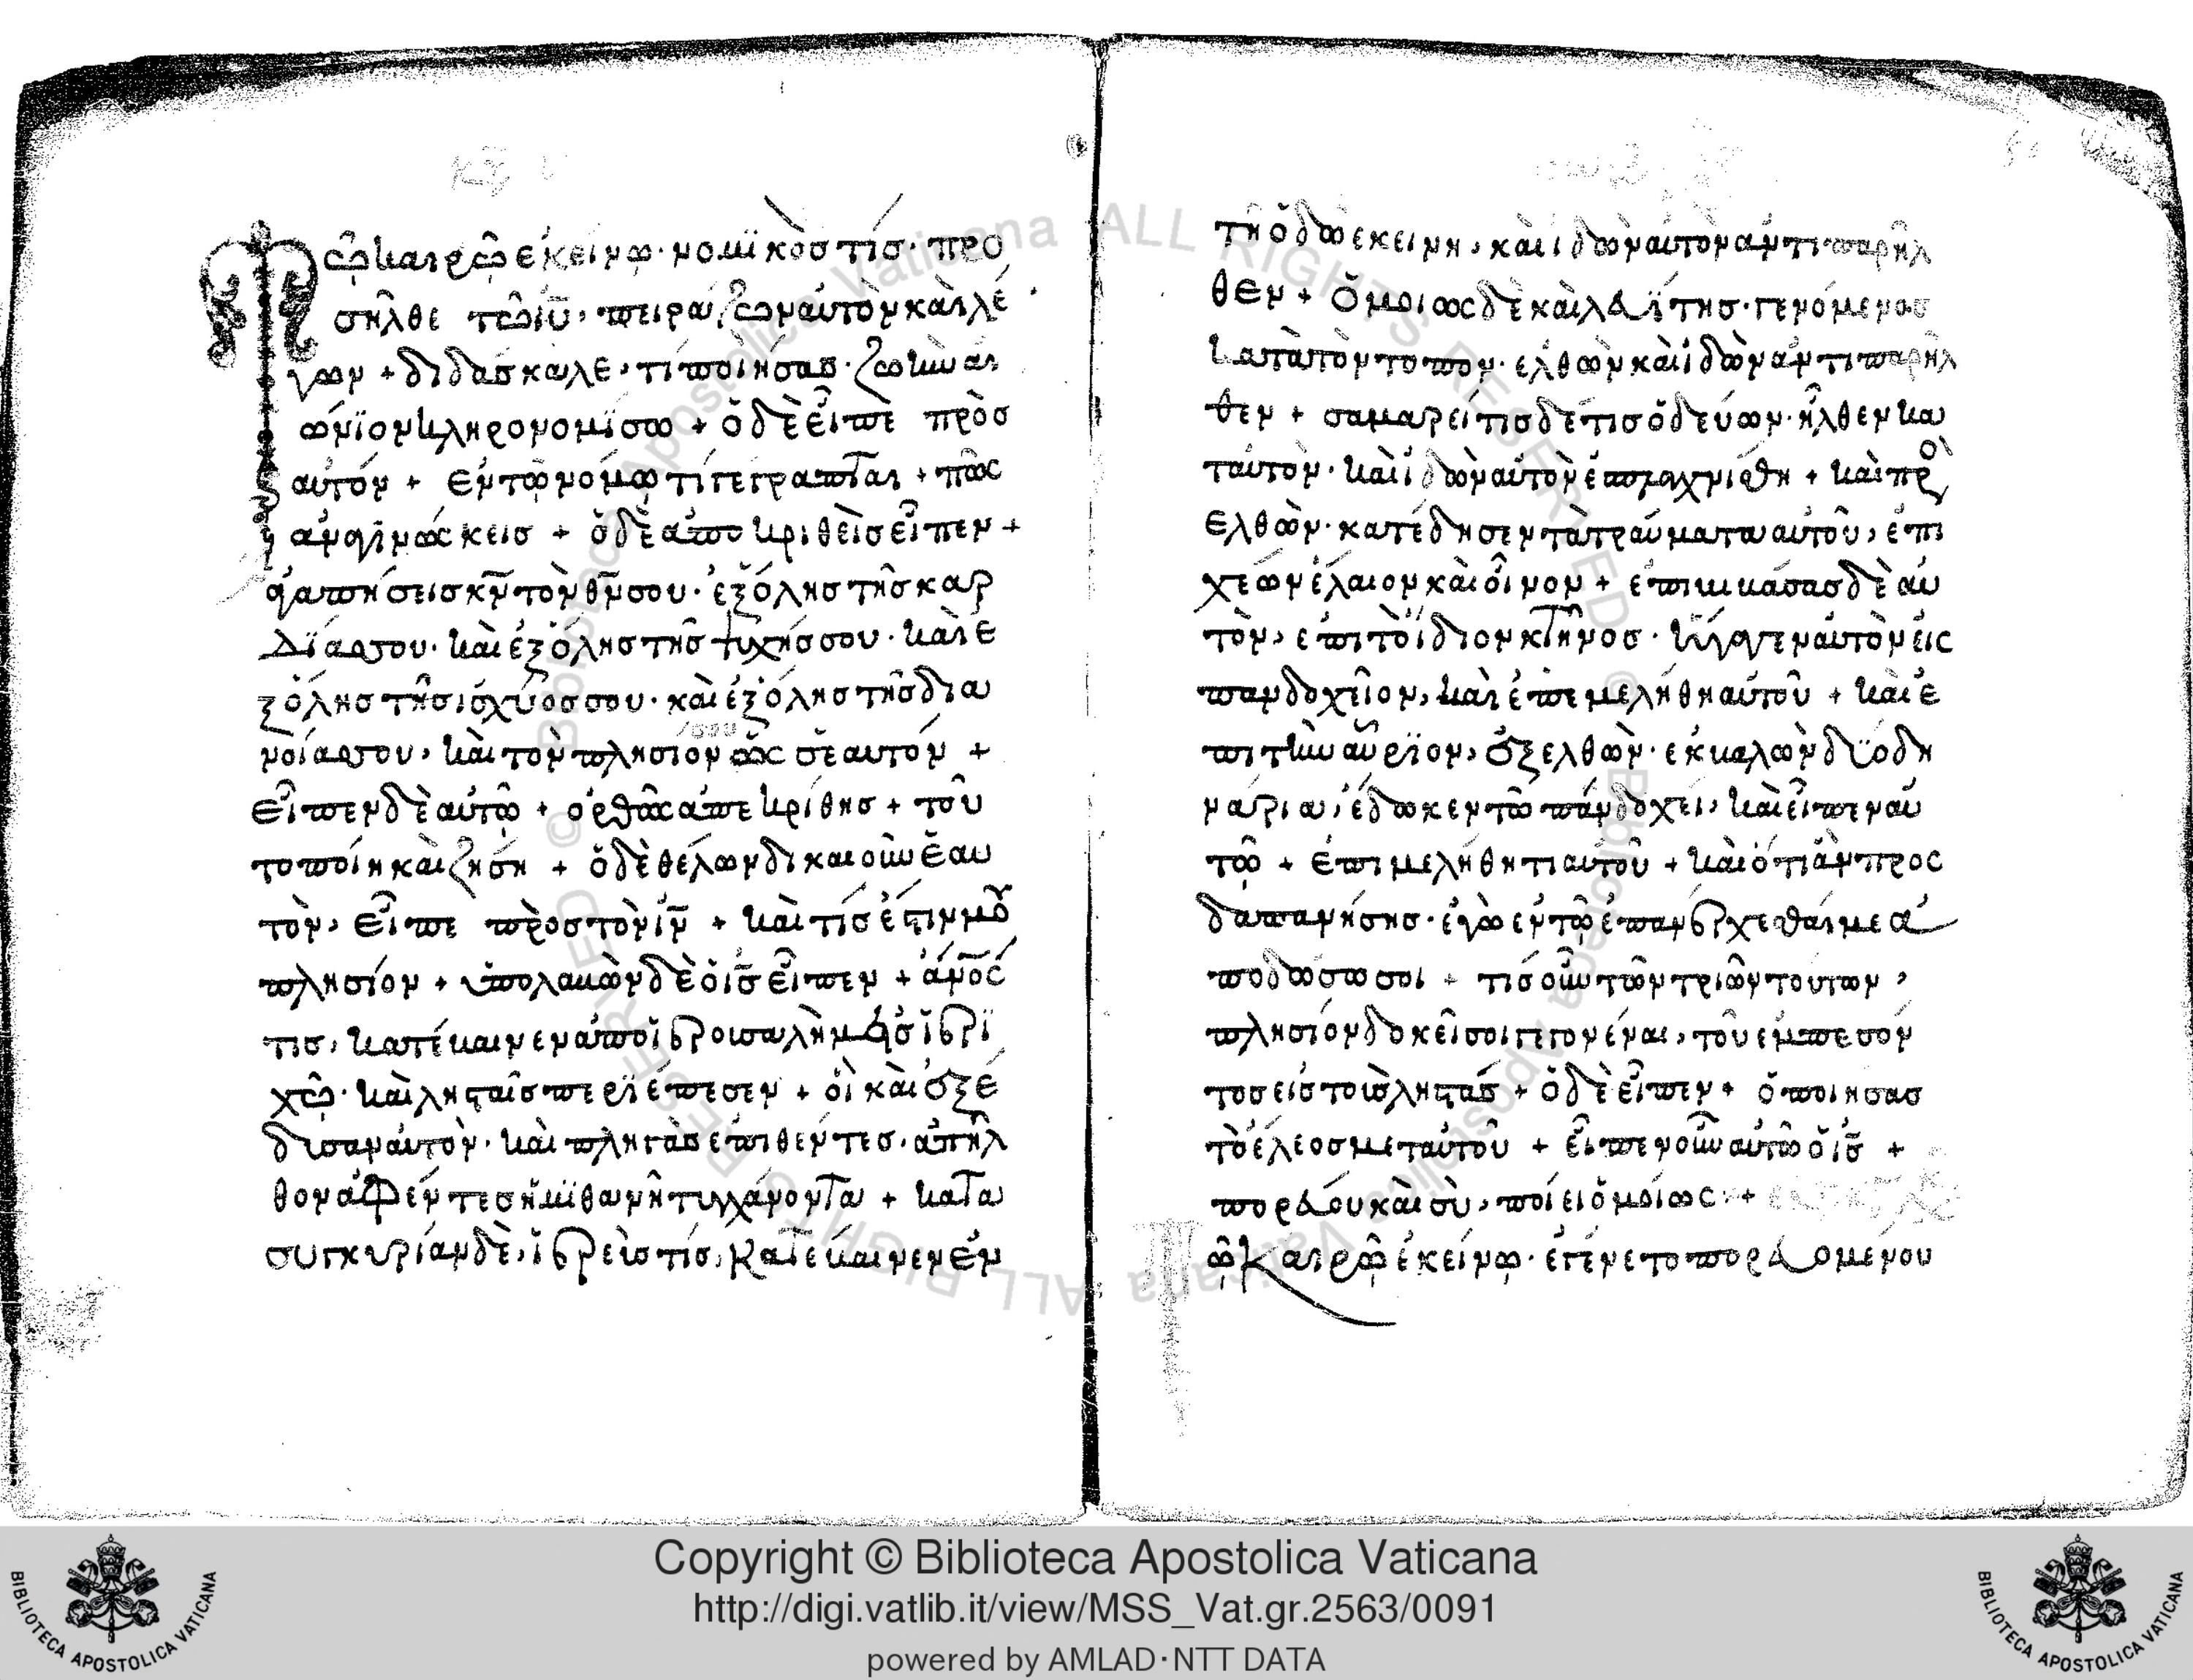 Τῶ καιρῶ ἐκείνω· νομϊκὸσ τίσ· προ
σῆλθε τῶ ιῦ, πειράζων αὐτὸν καὶ λέ
γων + διδάσκαλε, τί ποιήσασ· ζωὴν αι
ώνϊον κληρονομϊσω + ὁ δὲ εἶπὲ πρὸσ
αὐτόν + ἐν τῶ νόμω τί γέγραπται + πῶς
αναγινώσκεισ + ὁ δὲ ἀποκριθεὶσ εἶπεν +
ἀγαπήσεισ κν̄ τὸν θν̄ σου· ἐξ ὅλησ τῆσ καρ
δϊασ σου· καὶ ἐξ ὅλησ τῆσ ψυχήσ σου· καὶ ε
ξ ὅλησ τῆσ ισχύοσ σου· καὶ ἐξ ὅλησ τῆσ δια
νοίασ σου, καὶ τὸν πλησιον σου ὡς σεαυτόν +
εἶπεν δὲ αὐτῶ + ὀρθῶς ἀπεκρίθησ + τοῦ
το ποίει καὶ ζήση + ὁ δὲ θέλων δικαιοῦν ἑαυ
τὸν, εἶπε πρὸσ τὸν ιν̄ + καὶ τίσ ἐστιν μοῦ
πλησίον + ὑπολαβὼν δὲ ὁ ισ̄ εἶπεν + ἀνοσ̄
τισ, κατέβαινεν ἀπο ϊερουσαλὴμ εἰσ ϊερϊ
χῶ· καὶ λησταῖσ περϊέπεσεν + οἱ καὶ ἐξέ
δυσαν αὐτὸν· καὶ πληγὰσ ἐπιθέντεσ, ἀπῆλ
θον ἀφέντεσ ἡμϊθανῆ τυγχάνοντα + κατα
συγκυρίαν δὲ, ϊερεὺσ τίσ, κατέβαινεν ἐν
τῆ ὁδῶ εκεινη, καὶ ιδὼν αυτὸν ἀντιπαρῆλ
θεν + ὅμοιως δὲ καὶ λευϊτησ· γενόμενοσ
κατὰ τὸν τοπον· ἐλθὼν καὶ ἰδὼν ἀντιπαρῆλ
θεν + σαμαρείτισ δέ τισ ὁδεύων· ἦλθεν κα
τ αὐτὸν· καὶ ἰδὼν αὐτὸν ἐσπλαχνίσθη + καὶ προ
ελθὼν· κατέδησεν τὰ τραύματα αὐτοῦ, ἐπι
χέων ἔλαιον καὶ οἶνον + ἐπιβιβάσασ δὲ αὐ
τὸν, ἐπι τὸ ἴδιον κτῆνοσ· ἤγαγεν αὐτὸν εἰς
πανδοχεῖον, καὶ ἐπεμελήθη αὐτοῦ + καὶ ἐ
πι τὴν αὔρϊον, ἐξελθὼν· ἐκβαλὼν δϋο δη
νάρια, ἔδωκεν τῶ πανδοχεῖ, καὶ εἶπεν αὐ
τῶ + ἐπιμελήθητι αυτοῦ + καὶ ότι ὰν προς
δαπανήσησ· ἐγὼ ἐν τῶ ἐπανέρχεσθαί με ἀ
ποδώσω σοι + τίσ οὖν τῶν τριῶν τουτων,
πλησίον δοκεῖ σοι γεγονέναι, τοῦ ἐμπεσόν
τοσ εἰσ τουσ ληστάσ + ὁ δὲ εἶπεν + ὁ ποιήσασ
τὸ ἔλεοσ μετ αὐτοῦ + εἶπεν οὖν αὐτῶ ὁ ισ̄ +
πορεύου καὶ σὺ, ποίει ὁμοίως +
Τῶ Καιρῶ ἐκείνω· ἐγένετο πορευομένου
Copyright © Biblioteca Apostolica Vaticana
http://digi.vatlib.it/view/MSS_Vat.gr.2563/0091
powered by AMLAD·NTT DATA
BIBLIOTECA APOSTOLICA VATICANA
BIBLIOTECA APOSTOLICA VATICANA